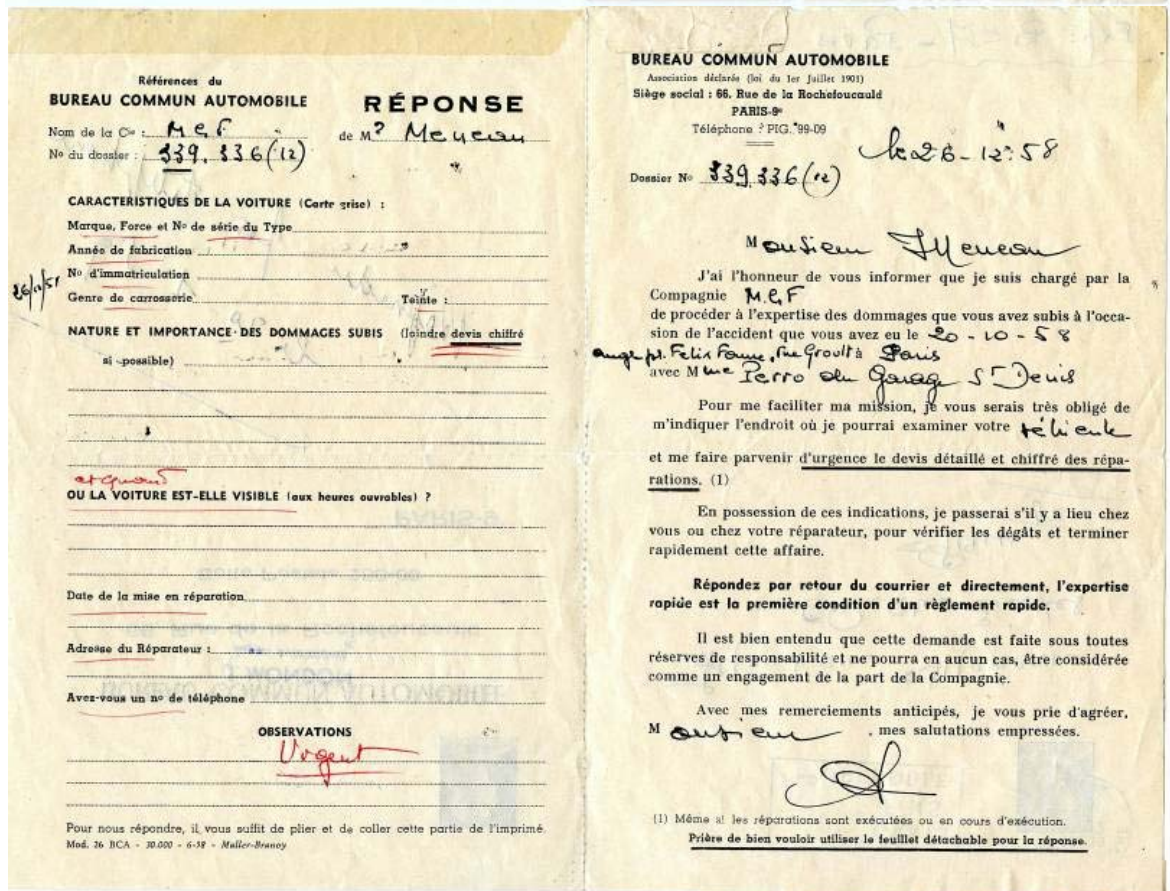 Références du
BUREAU COMMUN AUTOMOBILE
RÉPONSE
Nom de la Cie : M G F
de M? Meneau
No du dossier : 339.336 (12)
CARACTERISTIQUES DE LA VOITURE (Carte grise) :
Marque, Force et No de série du Type
Année de fabrication
No d'immatriculation
Genre de carrosserie
Teinte :
NATURE ET IMPORTANCE DES DOMMAGES SUBIS (Joindre devis chiffré
si possible)
et quand
OU LA VOITURE EST-ELLE VISIBLE (aux heures ouvrables) ?
Date de la mise en réparation
Adresse du Réparateur :
Avez-vous un no de téléphone
OBSERVATIONS
Urgent
Pour nous répondre, il vous suffit de plier et de coller cette partie de l'imprimé.
Mod. 26 BCA - 30.000 - 6-58 - Muller-Branoy
BUREAU COMMUN AUTOMOBILE
Association déclarée (loi du 1er Juillet 1901)
Siège social : 66, Rue de la Rochefoucauld
PARIS-9e
Téléphone : PIG. 99-09
le 26-12-58
Dossier No 339.336 (12)
Monsieur Meneau
J'ai l'honneur de vous informer que je suis chargé par la
Compagnie M.G.F
de procéder à l'expertise des dommages que vous avez subis à l'occa-
sion de l'accident que vous avez eu le 20-10-58
Felix Faure, rue Groult à Paris
avec Mme Perro du Garage St Denis
Pour me faciliter ma mission, je vous serais très obligé de
m'indiquer l'endroit où je pourrai examiner votre véhicule
et me faire parvenir d'urgence le devis détaillé et chiffré des répa-
rations. (1)
En possession de ces indications, je passerai s'il y a lieu chez
vous ou chez votre réparateur, pour vérifier les dégâts et terminer
rapidement cette affaire.
Répondez par retour du courrier et directement, l'expertise
rapide est la première condition d'un règlement rapide.
Il est bien entendu que cette demande est faite sous toutes
réserves de responsabilité et ne pourra en aucun cas, être considérée
comme un engagement de la part de la Compagnie.
Avec mes remerciements anticipés, je vous prie d'agréer,
Monsieur, mes salutations empressées.
(1) Même si les réparations sont exécutées ou en cours d'exécution.
Prière de bien vouloir utiliser le feuillet détachable pour la réponse.